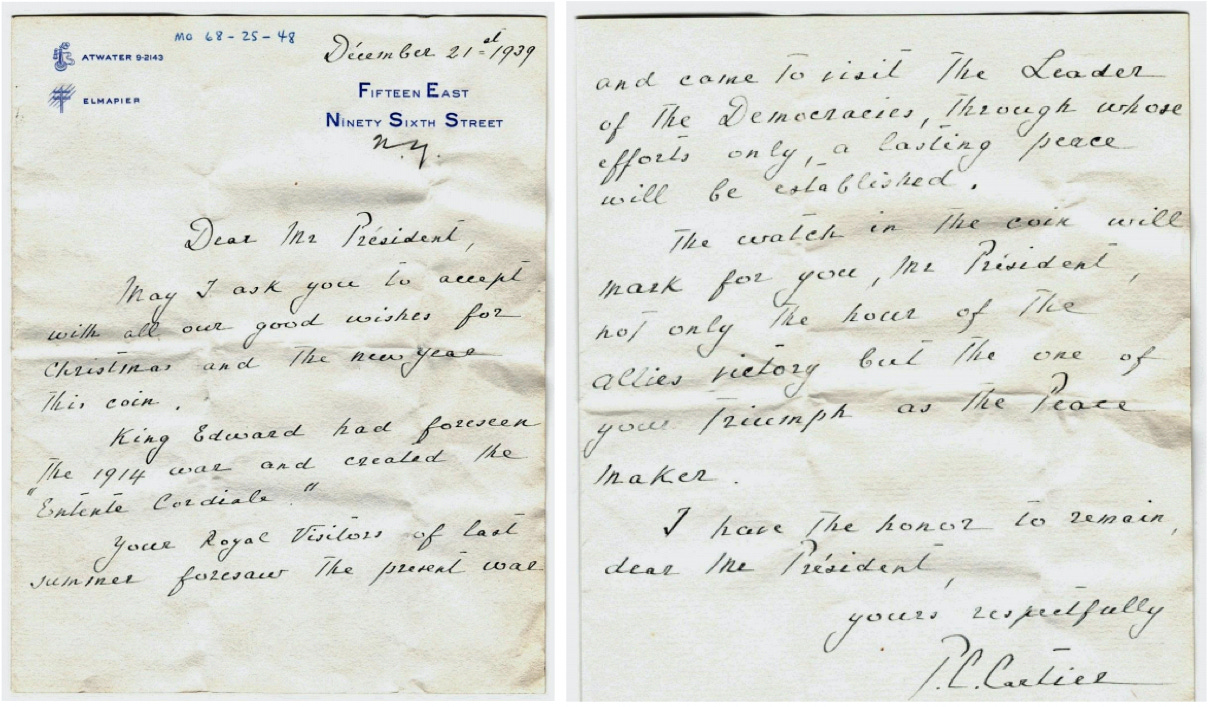 MO 68-25-48
ATWATER 9-2143
ELMAPIER
Décember 21st 1939
FIFTEEN EAST
NINETY SIXTH STREET
N.Y.
Dear Mr Président,
May I ask you to accept
with all our good wishes for
Christmas and the new year
this coin.
King Edward had foreseen
the 1914 war and created the
"Entente Cordiale."
Your Royal Visitors of last
summer foresaw the present war
and came to visit the Leader
of the Democracies, through whose
efforts only, a lasting peace
will be established.
The watch in the coin will
mark for you, Mr Président,
not only the hour of the
Allies victory but the one of
your triumph as the Peace
Maker.
I have the honor to remain,
dear Mr Président,
yours respectfully
P.C. Cartier